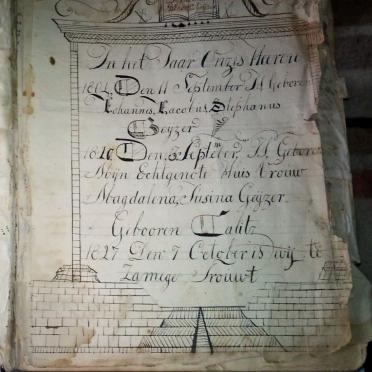 In het Jaar Onzis Heeren
1804 Den 11 September Is Geboren
Johannis Jacobus Stephanus
Geyzer
Den Septeber Is Geboren
Mijn Echtgenote Huis vrouw
Magdalena Susina Geyzer
Gebooren Calitz
1827 Den 7 October is wij te
Zamige Trouwt